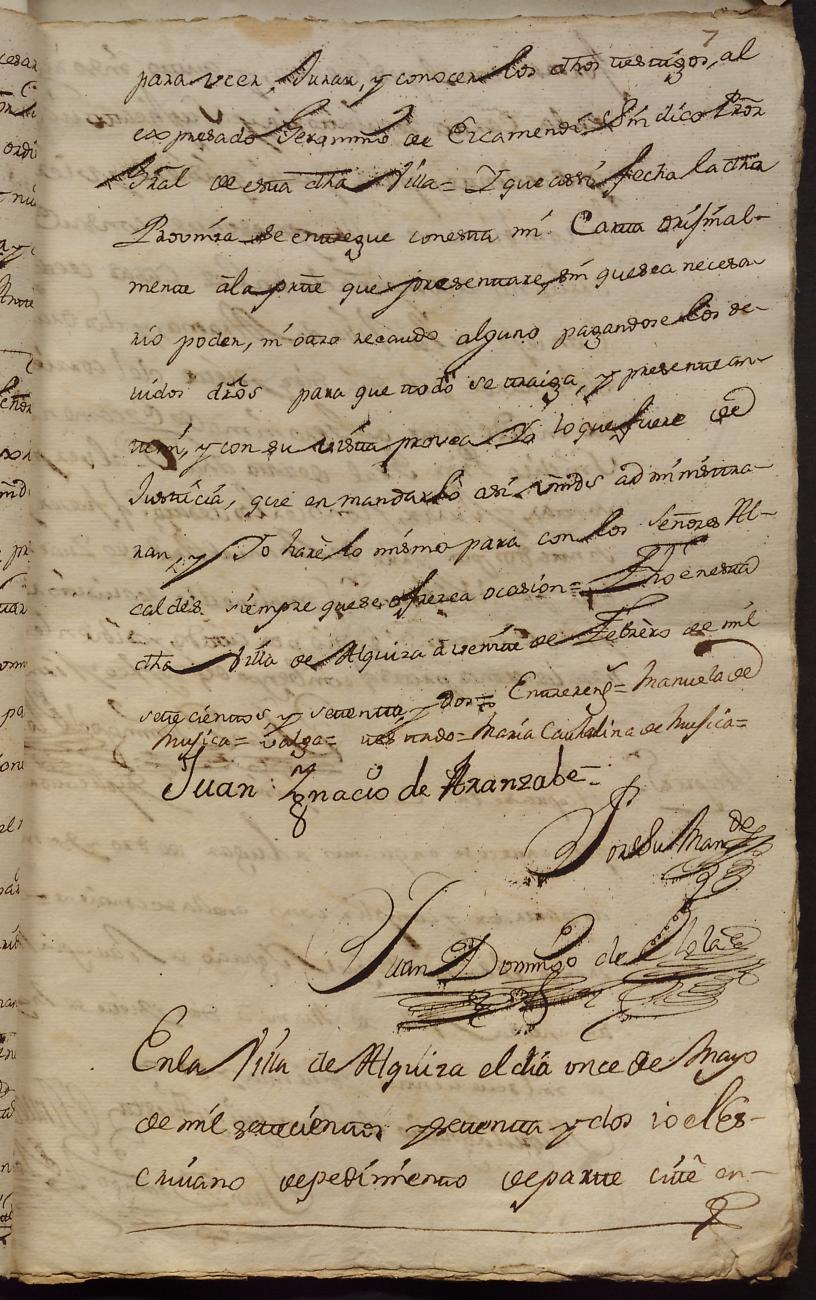 7
para veer, Jurar, y conocer los dhos testigos, al
expresado Geronimo de Ercamendi Sindico Pror
Gral de esta dha Villa = Y que assi fecha la dha
Provinza se entregue con esta mi Carta orijinal-
mente âla prte que presentare, sin que sea necesa-
rio poder, ni otro recaudo alguno pagandose los de-
vidos dros para que todo se traiga, y presente an-
temi, y con su vista provea Yo lo que fuere de
Justicia, que en mandarlo assi vmds administra-
ran, y Yo harè lo mismo para con los Señores Al-
caldes siempre que se ofrezca ocasion = Fho en esta
dha Villa de Alquiza a veinte de Febrero de mil
setecientos y setenta y dos = Entrereng.s = Manuela de
Musica = Valga = testado = Maria Cathalina de Musica =
Juan Ignacio de Aranzabe
Por su Mando
Juan Domingo de
En la Villa de Alquiza el dia once de Mayo
de mil setecientos y setenta y dos io el Es-
crivano de pedimiento de parte cité en-